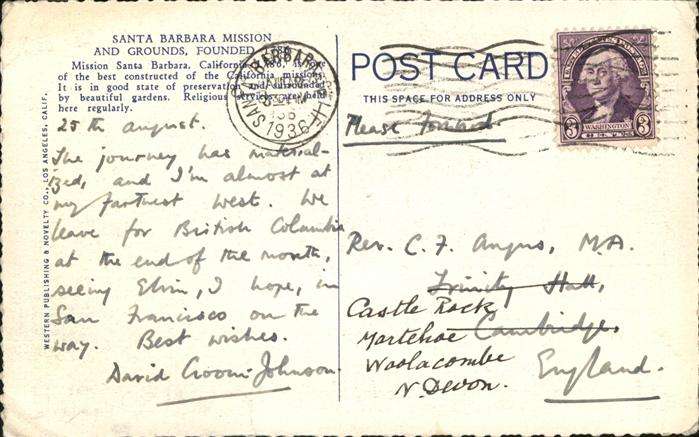 SANTA BARBARA MISSION
AND GROUNDS, FOUNDED
Mission Santa Barbara, California, is one
of the best constructed of the California missions.
It is in good state of preservation and surrounded
by beautiful gardens. Religious services are held
here regularly.
25th august.
The journey has material-
ized, and I'm almost at
my farthest west. We
leave for British Columbia
at the end of the month,
seeing Elvin, I hope, in
San Francisco on the
way. Best wishes.
David Croom-Johnson.
WESTERN PUBLISHING & NOVELTY CO., LOS ANGELES, CALIF.
SANTA BARBARA
1936
CALIF.
POST CARD
THIS SPACE FOR ADDRESS ONLY
UNITED STATES POSTAGE
3 WASHINGTON 3
CENTS
Please forward
Rev. C. F. Angus, M.A.
Trinity Hall,
Cambridge,
England.
Castle Rock
Mortehoe
Woolacombe
N. Devon.